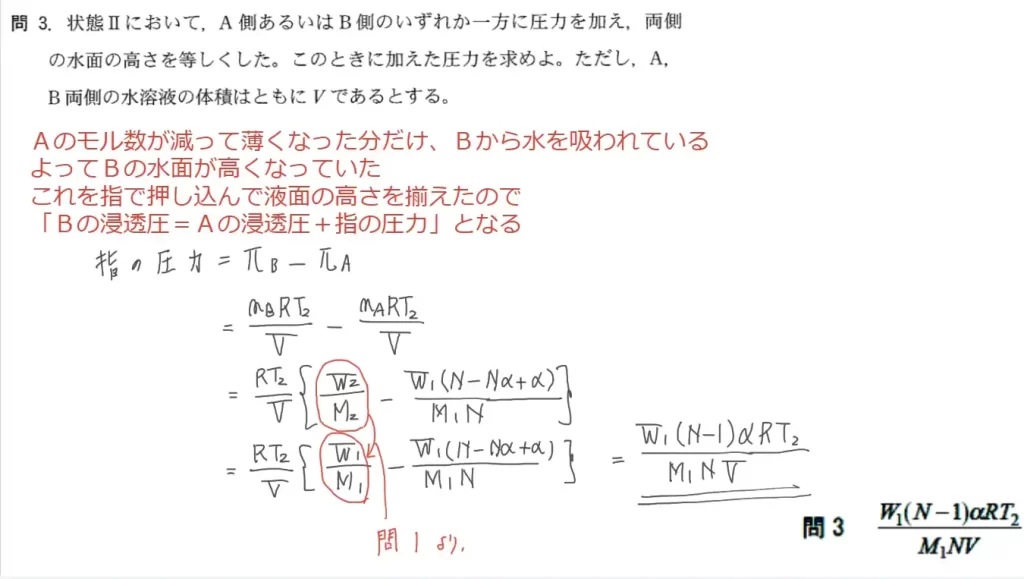 問 3. 状態Ⅱにおいて，A 側あるいは B 側のいずれか一方に圧力を加え，両側
の水面の高さを等しくした。このときに加えた圧力を求めよ。ただし，A，
B 両側の水溶液の体積はともに V であるとする。
Ａのモル数が減って薄くなった分だけ、Ｂから水を吸われている
よってＢの水面が高くなっていた
これを指で押し込んで液面の高さを揃えたので
「Ｂの浸透圧＝Ａの浸透圧＋指の圧力」となる
指の圧力 = π_B − π_A
= n_B RT₂/V − n_A RT₂/V
= RT₂/V { W₂/M₂ − W₁(N−Nα+α)/M₁N }
= RT₂/V { W₁/M₁ − W₁(N−Nα+α)/M₁N } = W₁(N−1)αRT₂/M₁NV
問1より.
問3 W₁(N−1)αRT₂/M₁NV